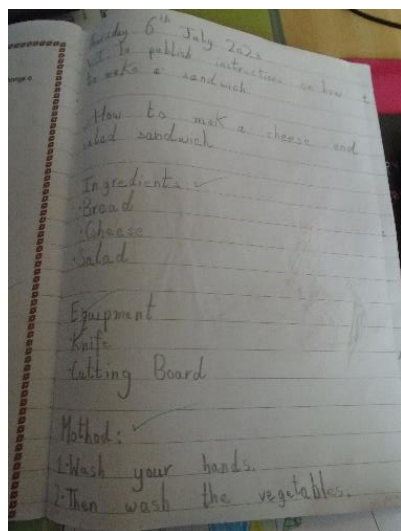 6th July 202
to publish instructions on how t
to make a sandwich
How to make a cheese and
salad sandwich
Ingredients:
·Bread
·Cheese
·Salad
Equipment
·Knife
·Cutting Board
Method:
1·Wash your hands.
2·Then wash the vegetables.